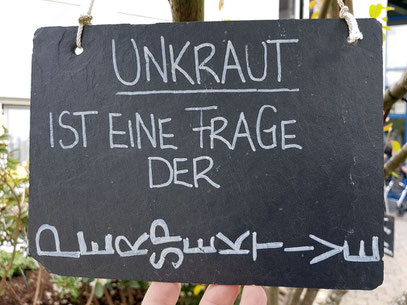 UNKRAUT
IST EINE FRAGE
DER
PERSPEKTIVE